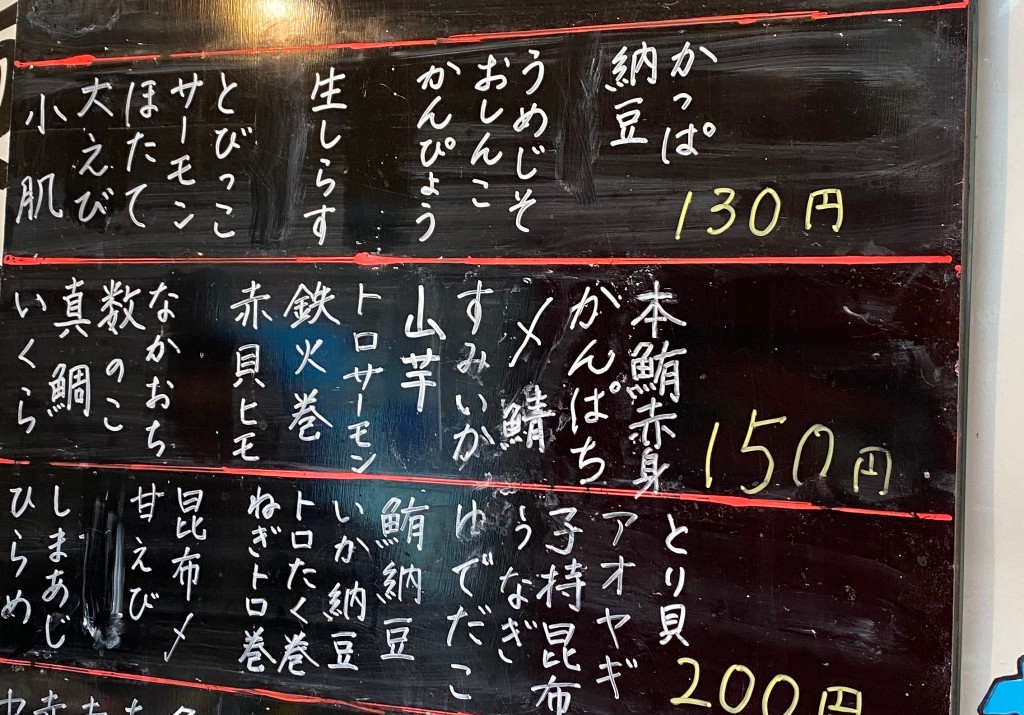 130円
かっぱ
納豆
うめじそ
おしんこ
かんぴょう
生しらす
とびっこ
サーモン
ほたて
大えび
小肌
150円
本鮪赤身
かんぱち
〆鯖
すみいか
山芋
トロサーモン
鉄火巻
赤貝ヒモ
なかおち
数のこ
真鯛
いくら
200円
とり貝
アオヤギ
子持昆布
うなぎ
ゆでだこ
鮪納豆
いか納豆
トロたく巻
ねぎトロ巻
昆布〆
甘えび
しまあじ
ひらめ